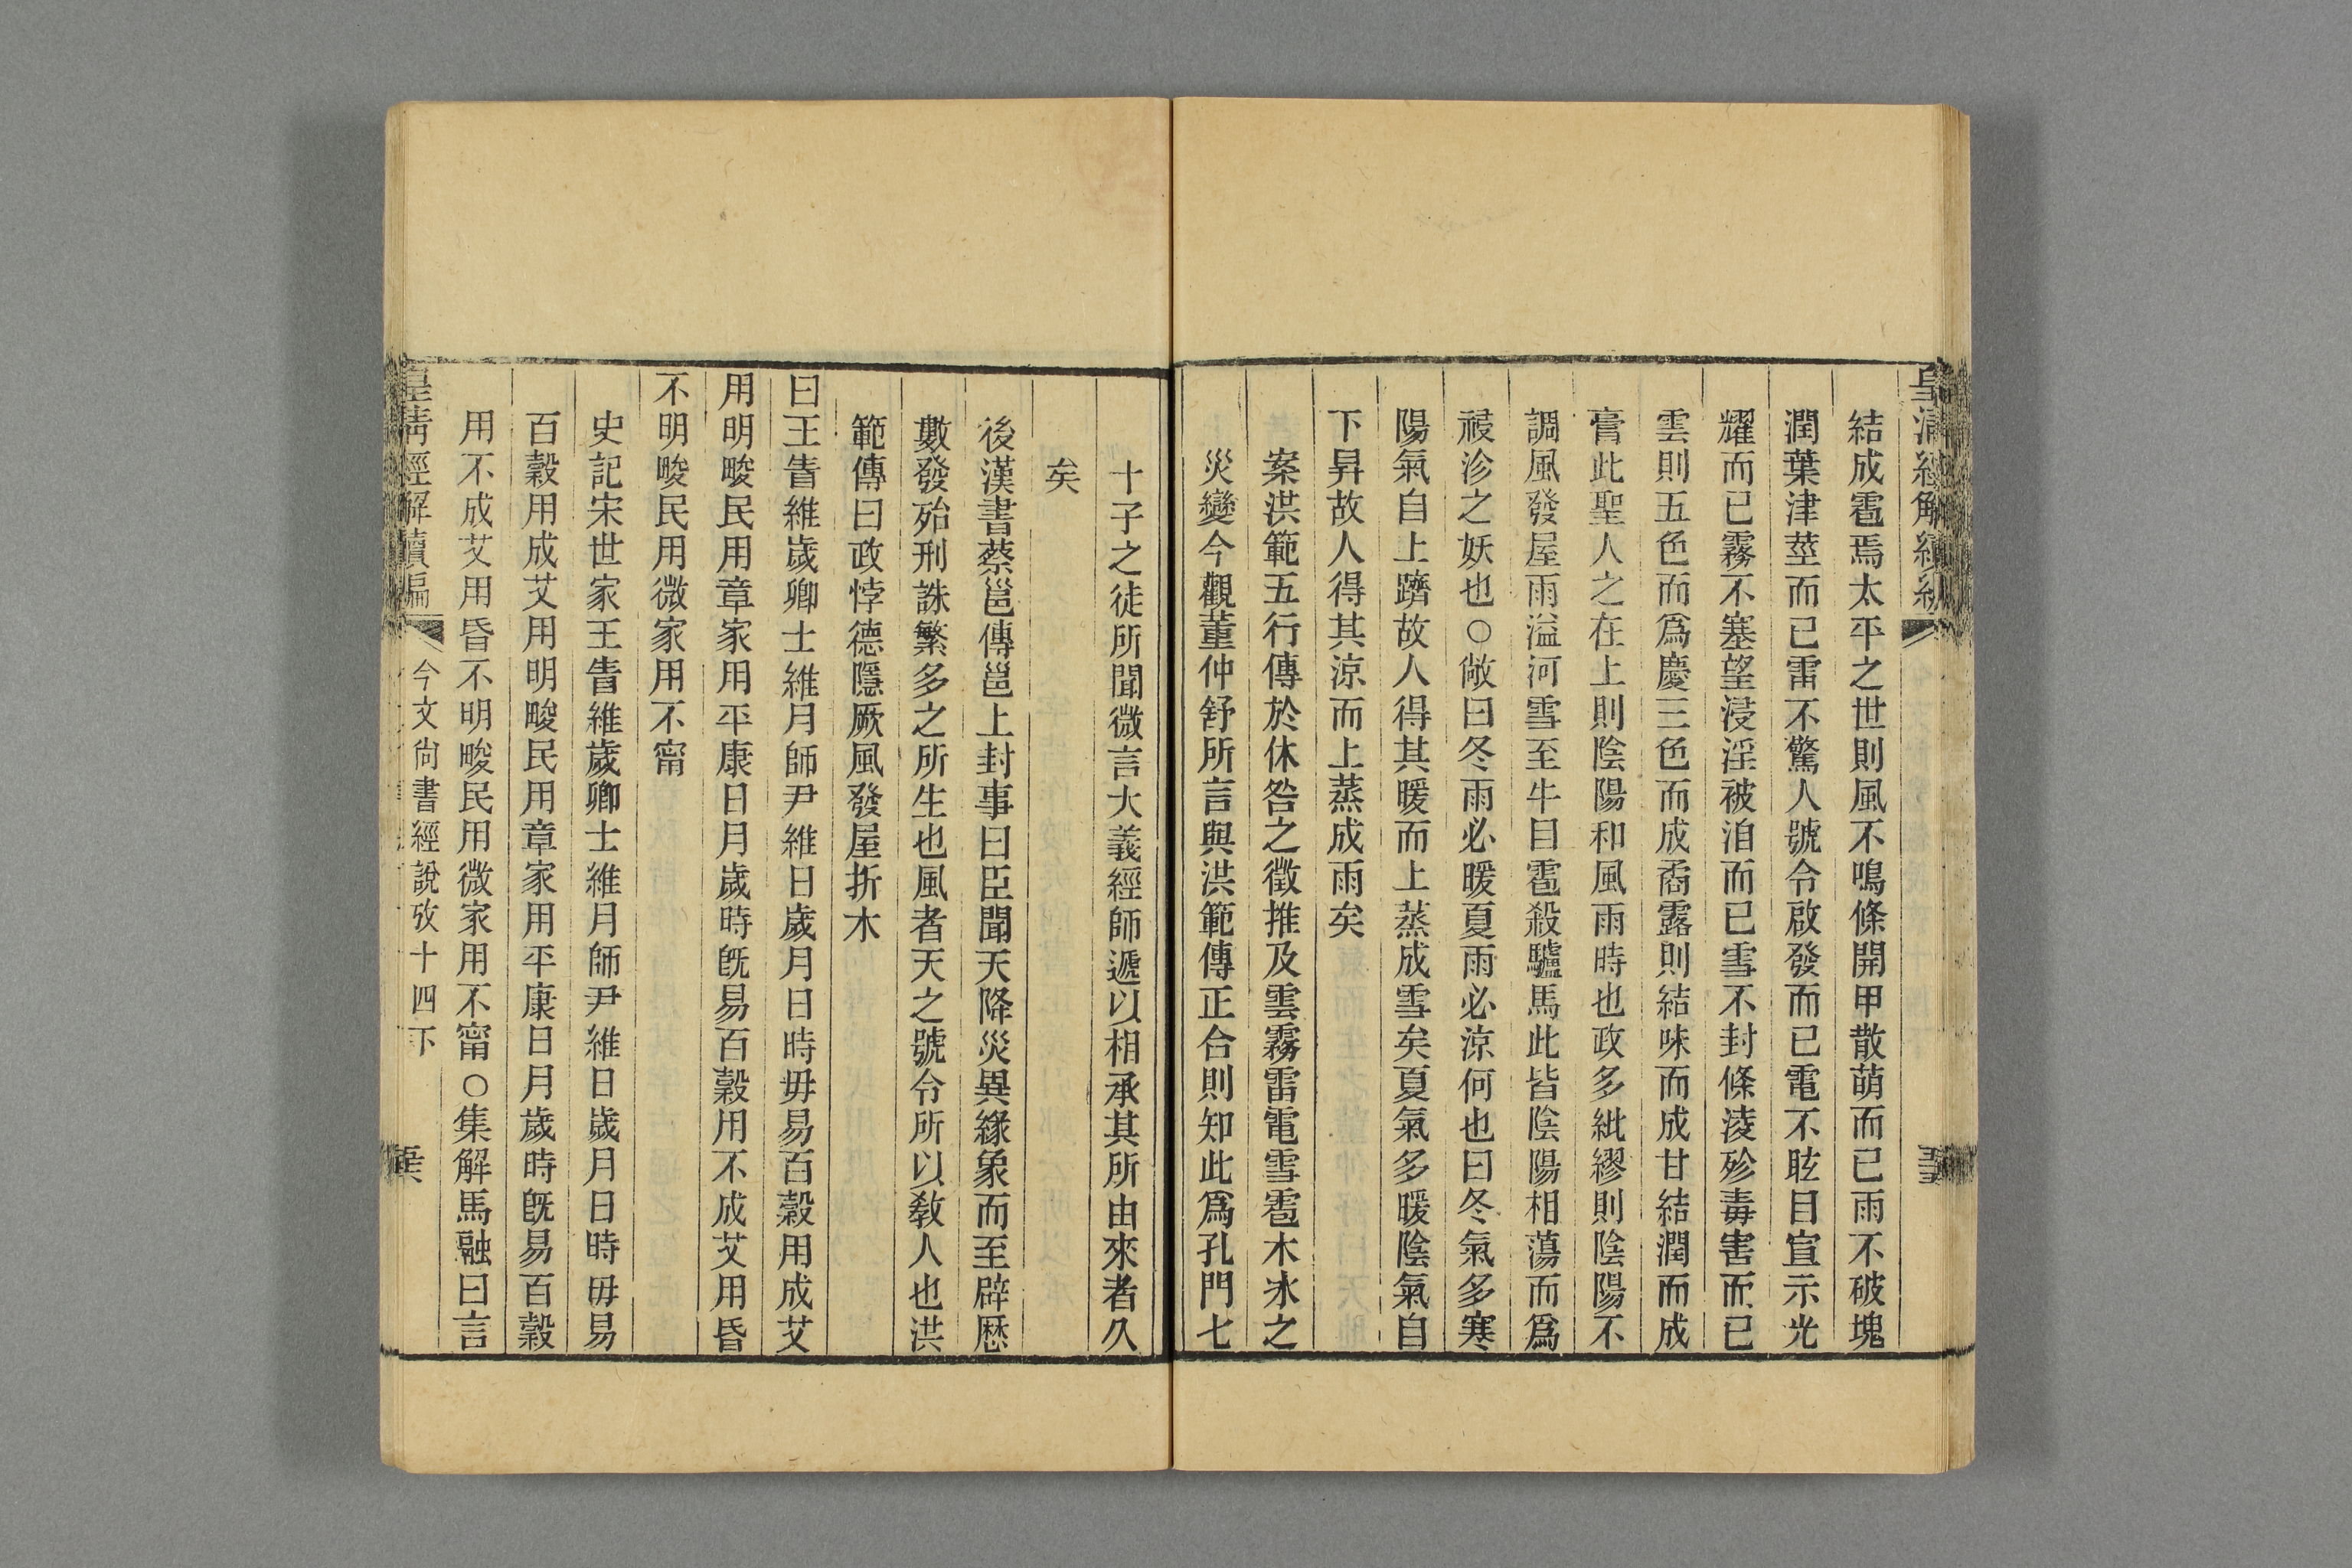 結成雹焉太平之世則風不鳴條開甲散萌而已雨不破塊
潤葉津莖而已雷不驚人號令啟發而已電不眩目宣示光
耀而已霧不塞望浸淫被洎而已雪不封條淩殄毒害而已
雲則五色而爲慶三色而成矞露則結味而成甘結潤而成
膏此聖人之在上則陰陽和風雨時也政多紕繆則陰陽不
調風發屋雨溢河雪至牛目雹殺驢馬此皆陰陽相蕩而爲
祲沴之妖也○敞曰冬雨必暖夏雨必涼何也曰冬氣多寒
陽氣自上躋故人得其暖而上蒸成雪矣夏氣多暖陰氣自
下昇故人得其涼而上蒸成雨矣
案洪範五行傳於休咎之徵推及雲霧雷電雪雹木冰之
災變今觀董仲舒所言與洪範傳正合則知此爲孔門七
十子之徒所聞微言大義經師遞以相承其所由來者久
矣
後漢書蔡邕傳邕上封事曰臣聞天降災異緣象而至辟歷
數發殆刑誅繁多之所生也風者天之號令所以敎人也洪
範傳曰政悖德隱厥風發屋折木
曰王眚維歲卿士維月師尹維日歲月日時毋易百穀用成艾
用明畯民用章家用平康日月歲時旣易百穀用不成艾用昏
不明畯民用微家用不甯
史記宋世家王眚維歲卿士維月師尹維日歲月日時毋易
百穀用成艾用明畯民用章家用平康日月歲時旣易百穀
用不成艾用昏不明畯民用微家用不甯○集解馬融曰言
皇清經解續編
今文尙書經說攷十四下